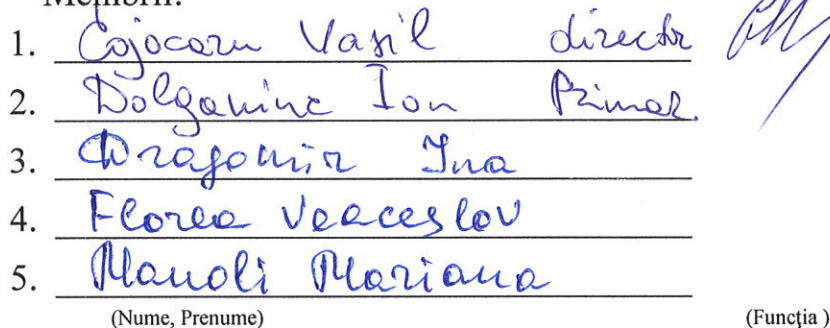 Membrii:
1. Cojocaru Vasil director
2. Ion Primar.
3. Dragomir Ina
4. Florea Veaceslov
5. Manoli Mariana
(Nume, Prenume) (Funcţia )